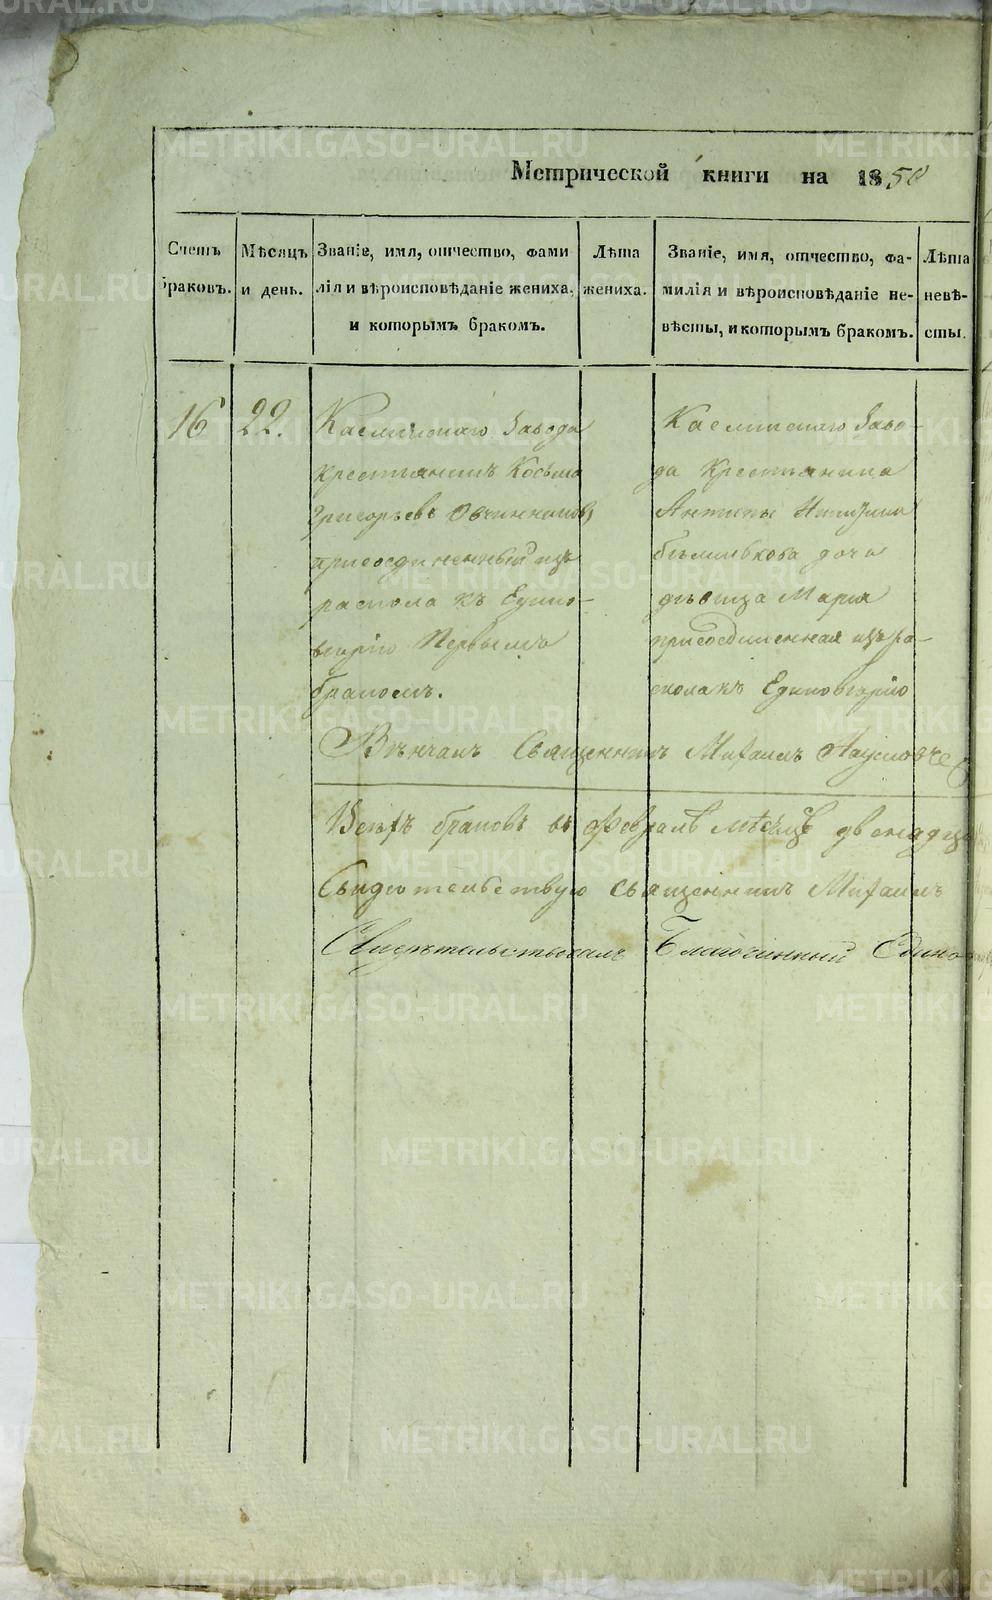 Метрической книги на 1850
Счетъ браковъ.
Мѣсяцъ и день.
Званіе, имя, отчество, фами
лія и вѣроисповѣданіе жениха,
и которымъ бракомъ.
Лѣта
жениха.
Званіе, имя, отчество, фа-
милія и вѣроисповѣданіе не-
вѣсты, и которымъ бракомъ.
Лѣта
невѣ-
сты.
16
22.
Каслинскаго Завода
крестьянинъ Косьма
Григорьевъ Овчинниковъ,
присоединенный изъ
раскола къ Едино-
вѣрію Первымъ
бракомъ.
Каслинскаго Заво-
да Крестьянина
Антипы
дочь
дѣвица Марія
присоединенная изъ ра-
скола къ Единовѣрію
Вѣнчалъ Священникъ Михаилъ
Всѣхъ браковъ въ Февралѣ мѣсяцѣ двенадц
Свидетельствую священникъ Михаилъ
Свидѣтельствовалъ Благочинный Едино
METRIKI.GASO-URAL.RU